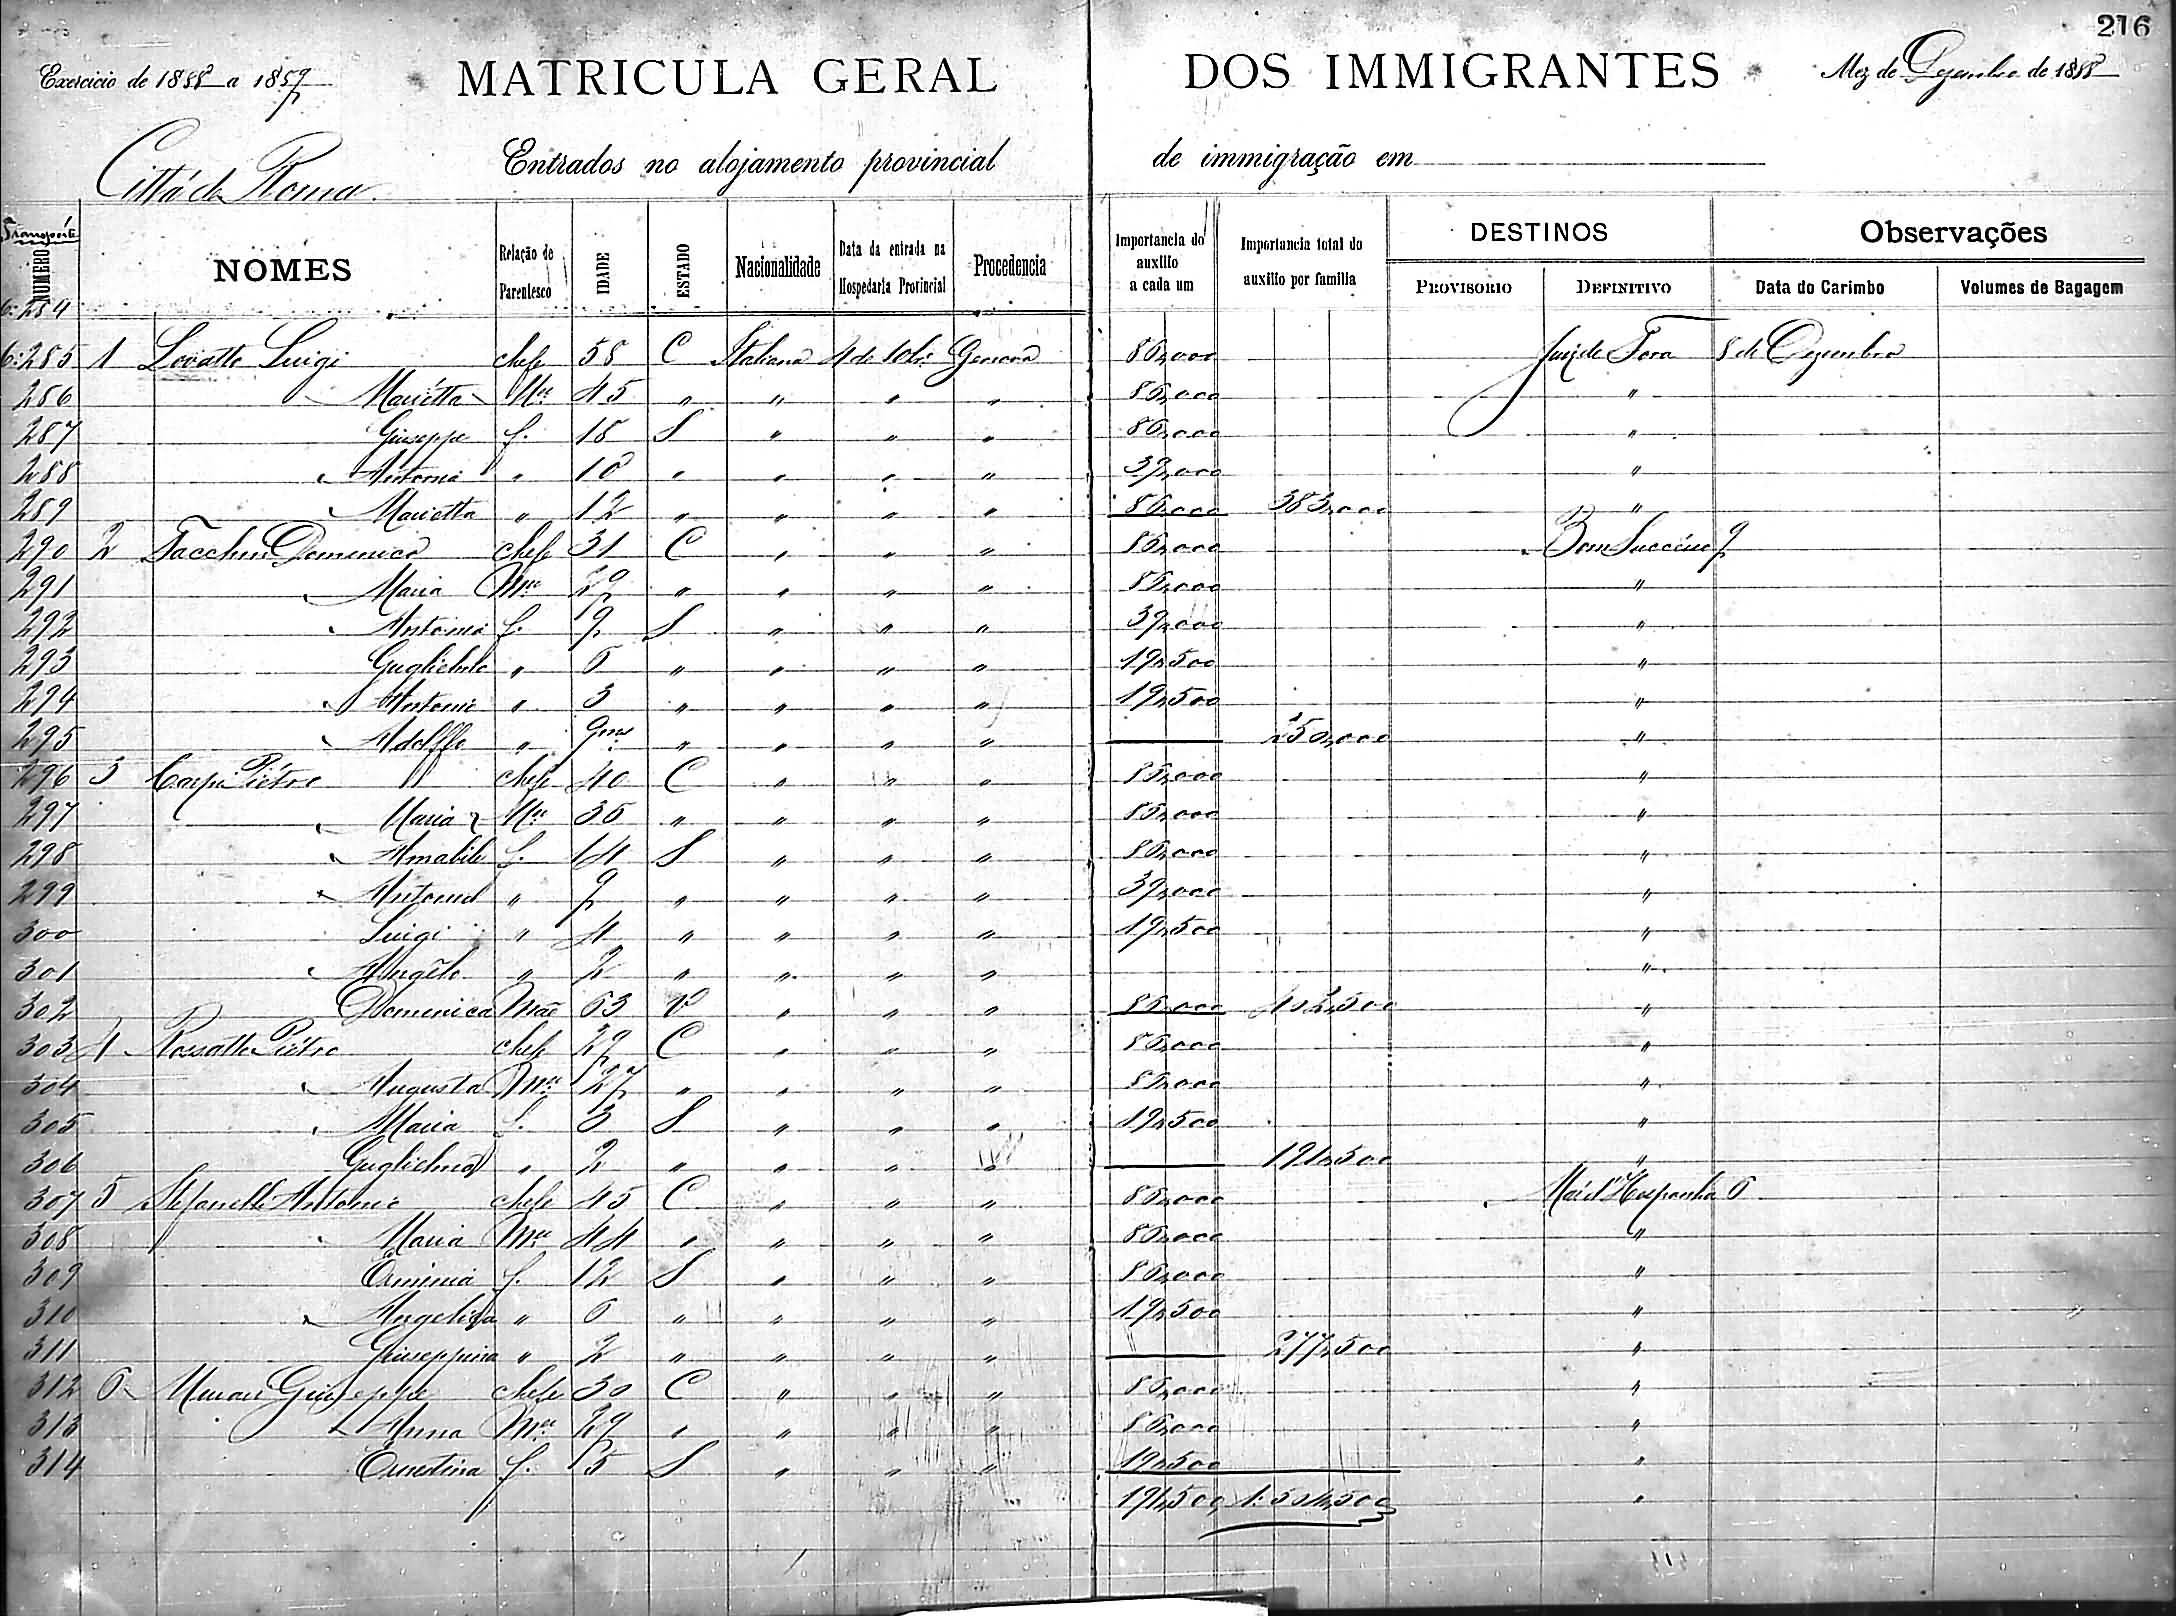 216
Exercicio de 1888 a 1889 MATRICULA GERAL DOS IMMIGRANTES Mez de Dezembro de 1888
Città di Roma Entrados no alojamento provincial de immigração em
Transporte
NUMERO NOMES Relação de Parentesco IDADE ESTADO Nacionalidade Data da entrada na Hospedaria Provincial Procedencia Importancia do auxilio a cada um Importancia total do auxilio por familia DESTINOS PROVISORIO DEFINITIVO Observações Data do Carimbo Volumes de Bagagem
6:284
6:285 1 Lovatto Luigi chefe 58 C Italiana 4 de 10bro Genova 86,000 Juiz de Fora 8 de Dezembro
286 " Marietta Mer 45 " " " " 86,000 "
287 Giuseppe f. 18 S " " " 86,000 "
288 " Antonio " 10 " " " " 39,000 "
289 " Marietta " 12 " " " " 86,000 383,000 "
290 2 Facchin Domenico chefe 31 C " " " 86,000 Bom Successo 9
291 " Maria Mer 29 " " " " 86,000 "
292 " Antonio f. 9 S " " " 39,000 "
293 Guglielmo " 6 " " " " 19,500 "
294 " Antonio " 3 " " " " 19,500 "
295 " Adolffo " 9ms " " " " 250,000 "
296 3 Carpi Piétro chefe 40 C " " " 86,000 "
297 " Maria Mer 35 " " " " 86,000 "
298 " Amabile f. 14 S " " " 86,000 "
299 " Antonio " 9 " " " " 39,000 "
300 Luigi " 4 " " " " 19,500 "
301 " Angelo " 2 " " " " "
302 Domenica Mãe 63 V " " " 86,000 402,500 "
303 4 Rossatto Piétro chefe 29 C " " " 86,000 "
304 " Augusta Mer 27 " " " " 86,000 "
305 " Maria f. 3 S " " " 19,500 "
306 Guglielmo " 2 " " " " 191,500 "
307 5 Stefanello Antonio chefe 45 C " " " 86,000 Mar d'Hespanha 6
308 " Maria Mer 44 " " " " 86,000 "
309 f. 12 S " " " 86,000 "
310 " Angelica " 6 " " " " 19,500 "
311 Giuseppina " 2 " " " " 277,500 "
312 6 Giuseppe chefe 30 C " " " 86,000 "
313 " Anna Mer 29 " " " " 86,000 "
314 f. 5 S " " " 19,500 "
191,500 1:504,500 "